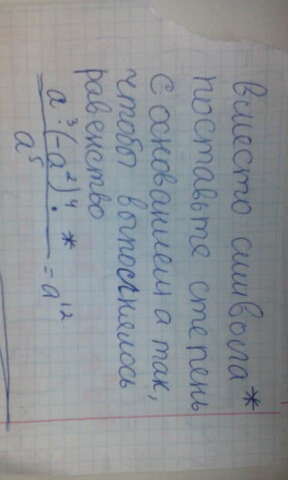 вместо символа *
поставьте степень
с основанием а так,
чтобы выполнялось
равенство
a³(-a²)⁴ · * / a⁵ = a¹²